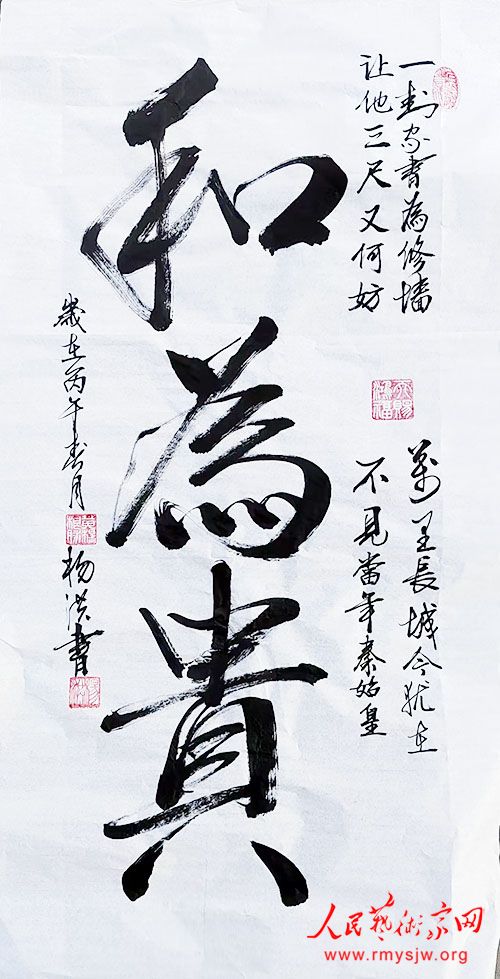 一封家書為修墙
让他三尺又何妨
萬里長城今犹在
不見當年秦始皇
和為貴
歲在丙午春月
杨洪書
天賜鴻福
人民艺术家网
www.rmysjw.org